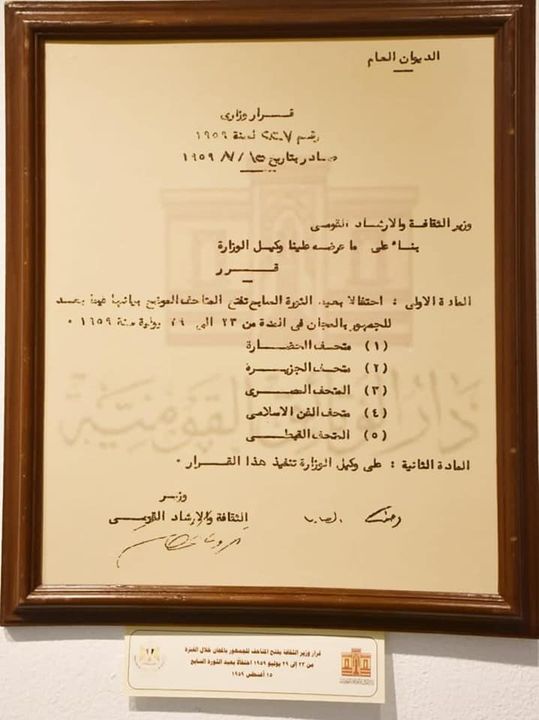 الديوان العام
قرار وزارى
رقم لسنة ١٩٥٩
صادر بتاريخ / ١٩٥٩
وزير الثقافة والارشاد القومى
بناء على ما عرضه علينا وكيل الوزارة
قرر
المادة الاولى : احتفالا بعيد الثورة السابع تفتح المتاحف الموضح بيانها فيما بعد
للجمهور بالمجان فى المدة من ٢٣ الى ٢٩ يوليه سنة ١٩٥٩ ٠
(١) متحف الحضارة
(٢) متحف الجزيرة
(٣) المتحف المصرى
(٤) متحف الفن الاسلامى
(٥) المتحف القبطى
المادة الثانية : على وكيل الوزارة تنفيذ هذا القرار ٠
وزير
الثقافة والارشاد القومى
دار الوثائق القومية
قرار وزير الثقافة بفتح المتاحف للجمهور بالمجان خلال الفترة
من ٢٣ إلى ٢٩ يوليو ١٩٥٩ احتفالا بعيد الثورة السابع
١٥ أغسطس ١٩٥٩